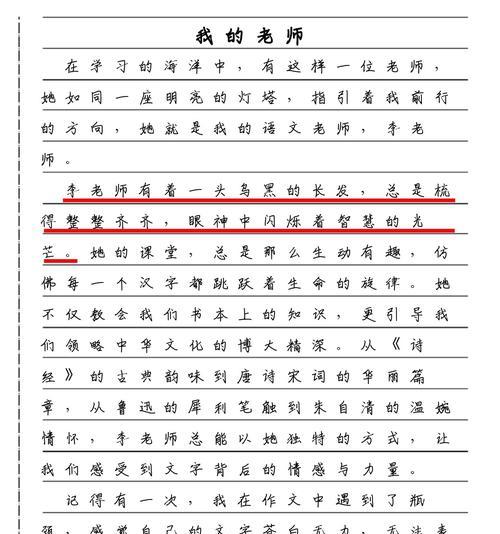 我的老师
在学习的海洋中，有这样一位老师，
她如同一座明亮的灯塔，指引着我前行
的方向，她就是我的语文老师，李老
师。
李老师有着一头乌黑的长发，总是梳
得整整齐齐，眼神中闪烁着智慧的光
芒。她的课堂，总是那么生动有趣，仿
佛每一个汉字都跳跃着生命的旋律。她
不仅教会我们书本上的知识，更引导我
们领略中华文化的博大精深。从《诗
经》的古典韵味到唐诗宋词的华丽篇
章，从鲁迅的犀利笔触到朱自清的温婉
情怀，李老师总能以她独特的方式，让
我们感受到文字背后的情感与力量。
记得有一次，我在作文中遇到了瓶
颈，感觉自己的文字苍白无力，无法表